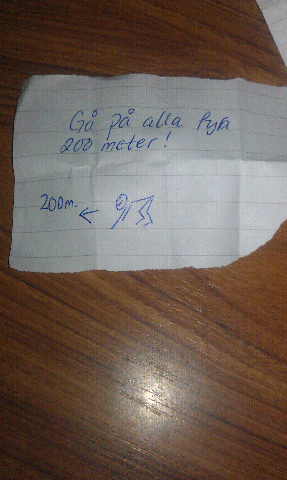 Gå på alla fyra
200 meter!
200m.